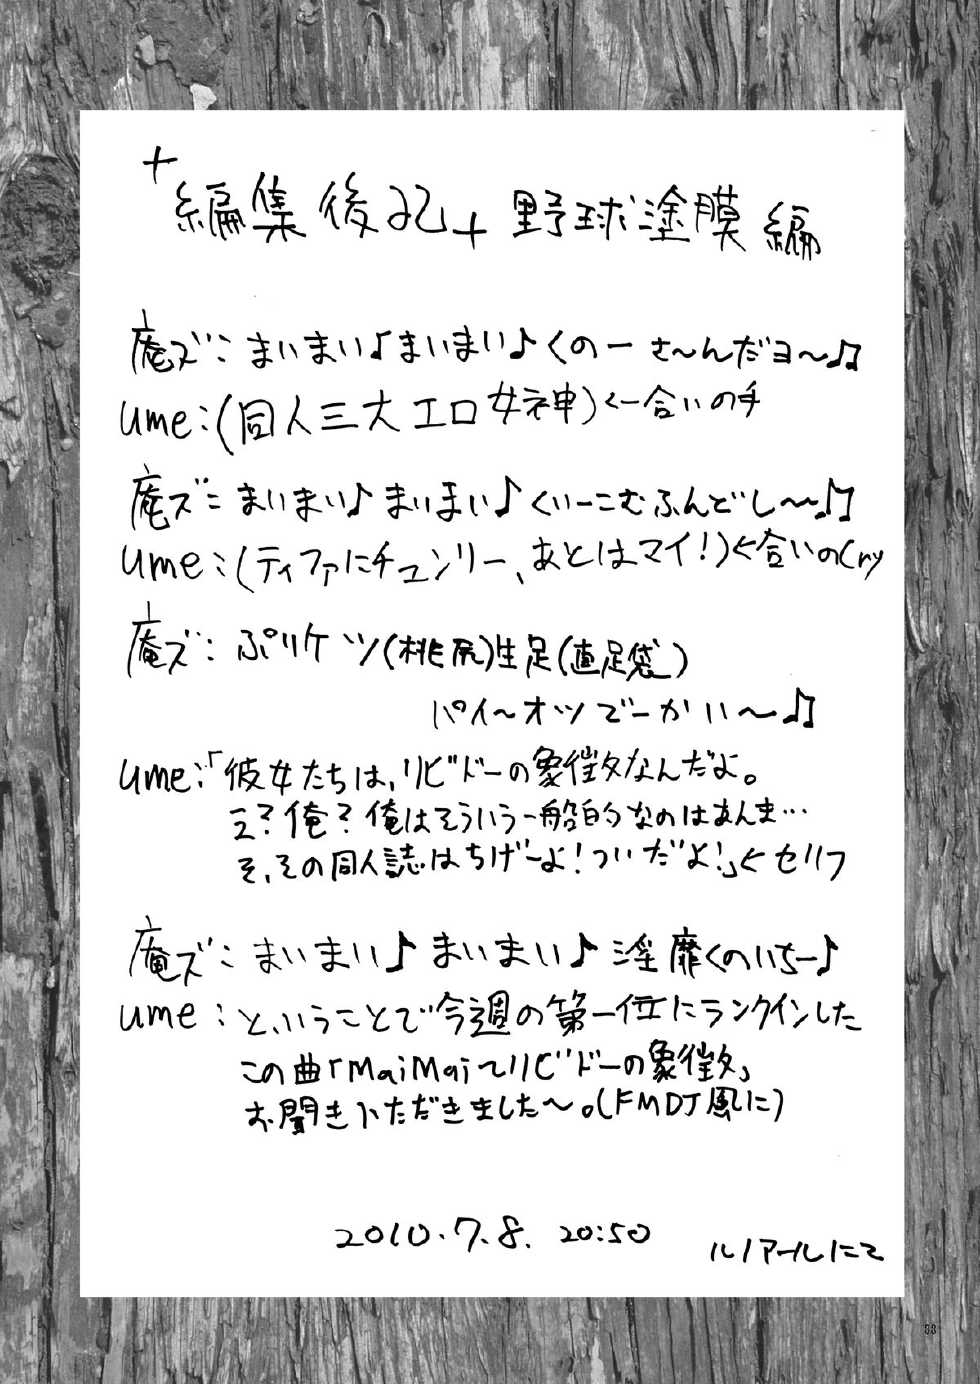 +編集後記+野球塗膜編
庵ズ:まいまい♪まいまい♪くのーさ〜んだヨ〜♫
ume:(同人三大エロ女神)←合いの手
庵ズ:まいまい♪まいまい♪くいーこむふんどし〜♫
ume:(ティファにチュンリー、あとはマイ!)←合いのCry
庵ズ:ぷりケツ(桃尻)生足(直足袋)
パイ〜オツでーかい〜♫
ume:「彼女たちは、リビドーの象徴なんだよ。
え?俺?俺はそういう一般的なのはあんま…
そ、その同人誌はちげーよ!ついだよ!」←セリフ
庵ズ:まいまい♪まいまい♪淫靡くのいちー♪
ume:と、いうことで今週の第一位にランクインした
この曲「MaiMai〜リビドーの象徴」
お聞きいただきました〜。(FMDJ風に)
2010.7.8. 20:50
ルノアールにて
53